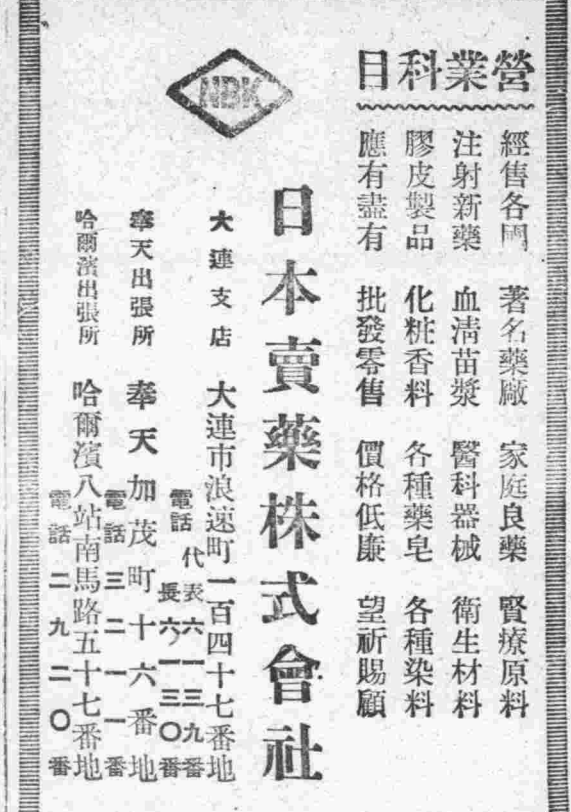 營業科目
經售各國 著名藥廠 家庭良藥 賢療原料
注射新藥 血淸苗漿 醫科器械 衛生材料
膠皮製品 化粧香料 各種藥皂 各種染料
應有盡有 批發零售 價格低廉 望祈賜顧
NBK
日本賣藥株式會社
大連支店 大連市浪速町一百四十七番地
電話 代表六一三九番
長六一三〇番
奉天出張所 奉天加茂町十六番地
電話三二一一番
哈爾濱出張所 哈爾濱八站南馬路五十七番地
電話二九二〇番